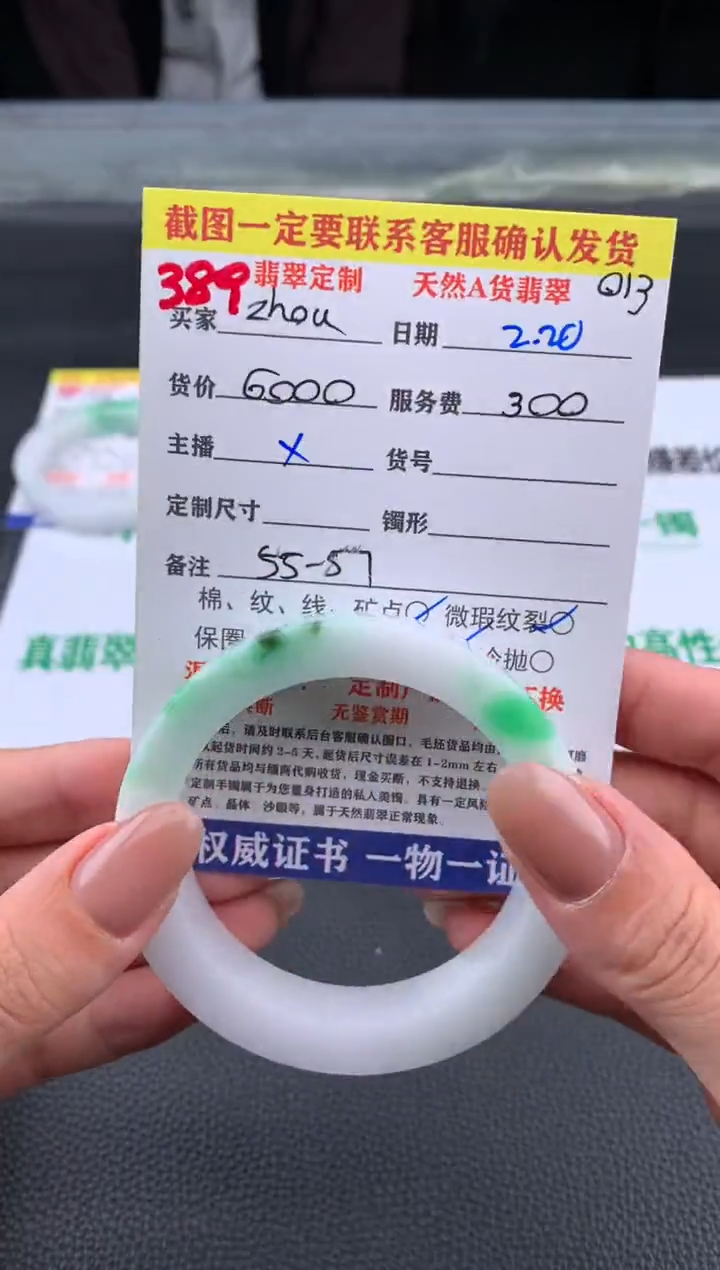 截图一定要联系客服确认发货
389 翡翠定制 天然A货翡翠 013
买家 zhou 日期 2.20
货价 6000 服务费 300
主播 X 货号
定制尺寸 镯形
备注 55-57
棉、纹、线、矿点 微瑕纹裂
保圈 抛
定制 换
无鉴赏期
后，请及时联系后台客服确认圈口，毛坯货品均由
起货时间约2-5天，起货后尺寸误差在1-2mm左右
所有货品均与缅商代购收货，现金买断，不支持退换
定制手镯属于为您量身打造的私人美镯，具有一定风险
矿点、晶体、沙眼等，属于天然翡翠正常现象。
权威证书 一物一证
真翡翠
高性
一镯